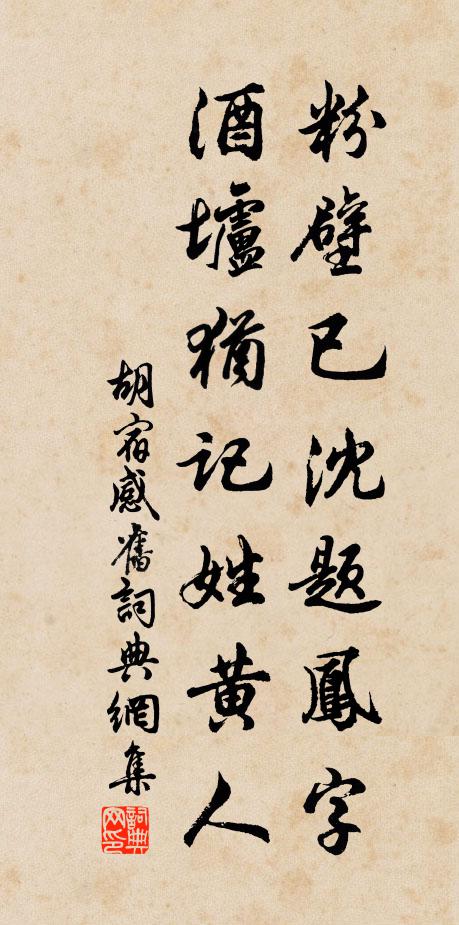 粉壁已沈题鳳字
酒壚猶記姓黄人
胡宿感舊詞典網集
詞典网印